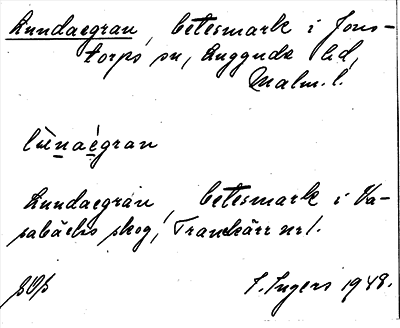 Lundaegran, betesmark i Jons-
torps sn, Luggude hd,
Malm. l.
lùnaégran
Lundaegran, betesmark i Va-
sabäcks skog, Trankärr nr 1.
I. Ingers 1948.